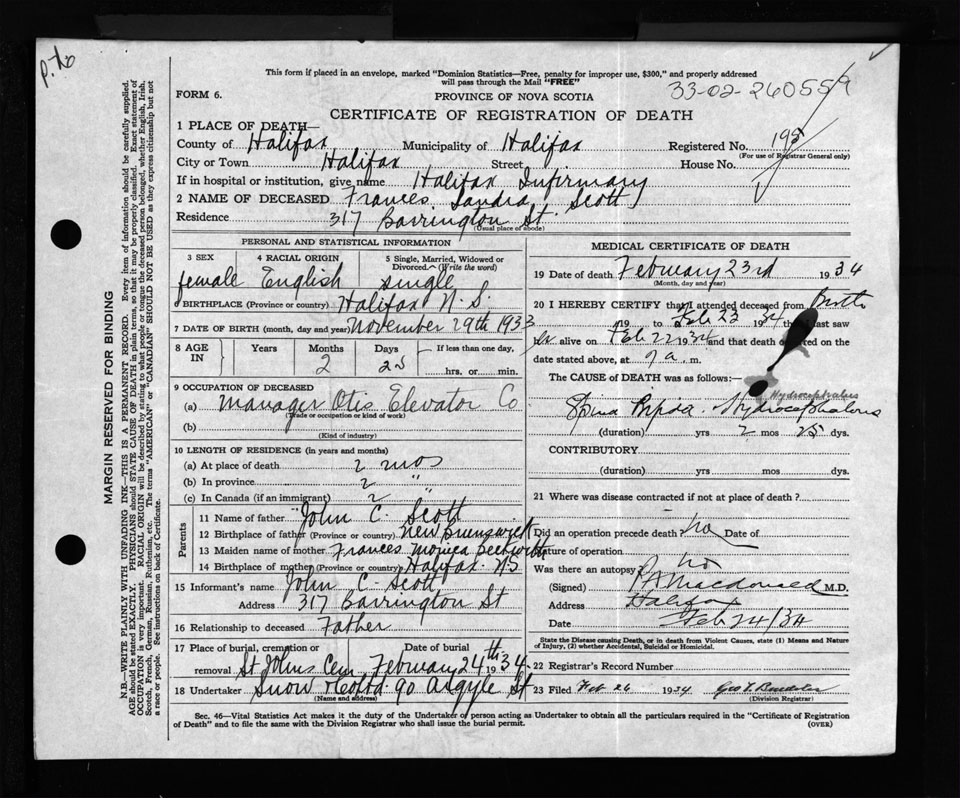 p.76
This form if placed in an envelope, marked "Dominion Statistics—Free, penalty for improper use, $300," and properly addressed
will pass through the Mail "FREE"
FORM 6.
PROVINCE OF NOVA SCOTIA
33-02-260559
CERTIFICATE OF REGISTRATION OF DEATH
1 PLACE OF DEATH—
County of Halifax Municipality of Halifax Registered No. 195
(For use of Registrar General only)
City or Town Halifax Street House No.
If in hospital or institution, give name Halifax Infirmary
2 NAME OF DECEASED Frances Sandra Scott
Residence 317 Barrington St.
(Usual place of abode)
PERSONAL AND STATISTICAL INFORMATION
3 SEX 4 RACIAL ORIGIN 5 Single, Married, Widowed or
Divorced. (Write the word)
female English single
BIRTHPLACE (Province or country) Halifax N.S.
7 DATE OF BIRTH (month, day and year) November 29th 1933
8 AGE IN Years Months Days If less than one day,
2 25 hrs. or min.
9 OCCUPATION OF DECEASED
(a) Manager Otis Elevator Co
(Trade or occupation or kind of work)
(b)
(Kind of industry)
10 LENGTH OF RESIDENCE (in years and months)
(a) At place of death 2 mos
(b) In province 2 "
(c) In Canada (if an immigrant) 2 "
Parents
11 Name of father John C. Scott
12 Birthplace of father (Province or country) New Brunswick
13 Maiden name of mother Frances Monica Beckwith
14 Birthplace of mother (Province or country) Halifax NS
15 Informant's name John C. Scott
Address 317 Barrington St
16 Relationship to deceased Father
17 Place of burial, cremation or Date of burial
removal St Johns Cem February 24th 1934
18 Undertaker Snow 90 Argyle St
(Name and address)
MEDICAL CERTIFICATE OF DEATH
19 Date of death February 23rd 1934
(Month, day and year)
20 I HEREBY CERTIFY that I attended deceased from Birth
19 to Feb 23 1934 that I last saw
her alive on Feb 22 1934 and that death occurred on the
date stated above, at 9 a. m.
The CAUSE of DEATH was as follows:
Hydrocephalus
Spina Bifida Hydrocephalous
(duration) yrs 2 mos 25 dys.
CONTRIBUTORY
(duration) yrs. mos. dys.
21 Where was disease contracted if not at place of death?
Did an operation precede death? No Date
Nature of operation
Was there an autopsy? No
(Signed) Macdonald M.D.
Address Halifax
Date Feb 24/34
State the Disease causing Death, or in death from Violent Causes, state (1) Means and Nature
of Injury, (2) whether Accidental, Suicidal or Homicidal.
22 Registrar's Record Number
23 Filed Feb 26 1934 Geo
(Division Registrar)
Sec. 46—Vital Statistics Act makes it the duty of the Undertaker or person acting as Undertaker to obtain all the particulars required in the "Certificate of Registration
of Death" and to file the same with the Division Registrar who shall issue the burial permit.
(OVER)
MARGIN RESERVED FOR BINDING
N.B.—WRITE PLAINLY WITH UNFADING INK—THIS IS A PERMANENT RECORD. Every item of information should be carefully supplied.
AGE should be stated EXACTLY. PHYSICIANS should state CAUSE OF DEATH in plain terms, so that it may be properly classified. Exact statement of
OCCUPATION is very important. RACIAL ORIGIN will be described by stating to what people or tongue the deceased person belonged, whether English, Irish,
Scotch, French, German, Russian, Ruthenian, etc. The terms "AMERICAN" or "CANADIAN" SHOULD NOT BE USED as they express citizenship but not
a race or people. See instructions on back of Certificate.